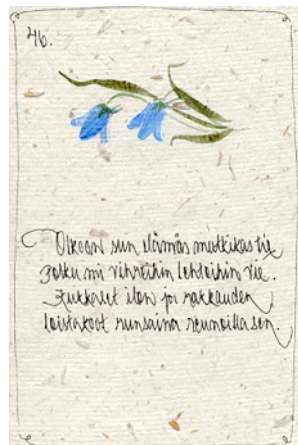 46.
Olkoon sun elämäs mutkikas tie
polku mi vihreihin lehtoihin vie.
Kukkaset ilon ja rakkauden
loistakoot runsaina reunoilla sen.